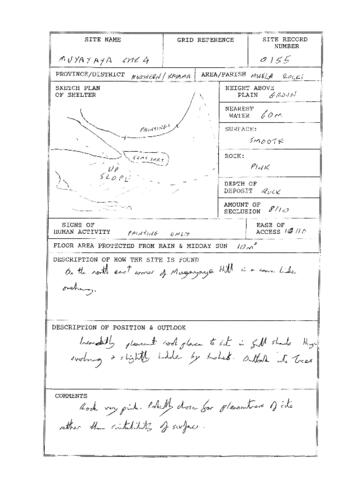 SITE NAME
GRID REFERENCE
SITE RECORD
NUMBER
MUYAYAYA CAVE 4
0155
PROVINCE/DISTRICT NORTHERN/KASAMA
AREA/PARISH MWELA ROCKS
SKETCH PLAN
OF SHELTER
PAINTINGS
UP
SLOPE
HEIGHT ABOVE
PLAIN GROUND
NEAREST
WATER 60m
SURFACE:
SMOOTH
ROCK:
PINK
DEPTH OF
DEPOSIT ROCK
AMOUNT OF
SECLUSION 8/10
SIGNS OF
HUMAN ACTIVITY PAINTING ONLY
EASE OF
ACCESS 10/10
FLOOR AREA PROTECTED FROM RAIN & MIDDAY SUN 10m²
DESCRIPTION OF HOW THE SITE IS FOUND
On the north east corner of Hill in a cave like
overhang.
DESCRIPTION OF POSITION & OUTLOOK
Incredibly pleasant cool place to sit in full shade High
overhang & slightly hidden by thicket. Outlook into trees
COMMENTS
Rock very pink. chosen for pleasantness of site
rather than suitability of surface.